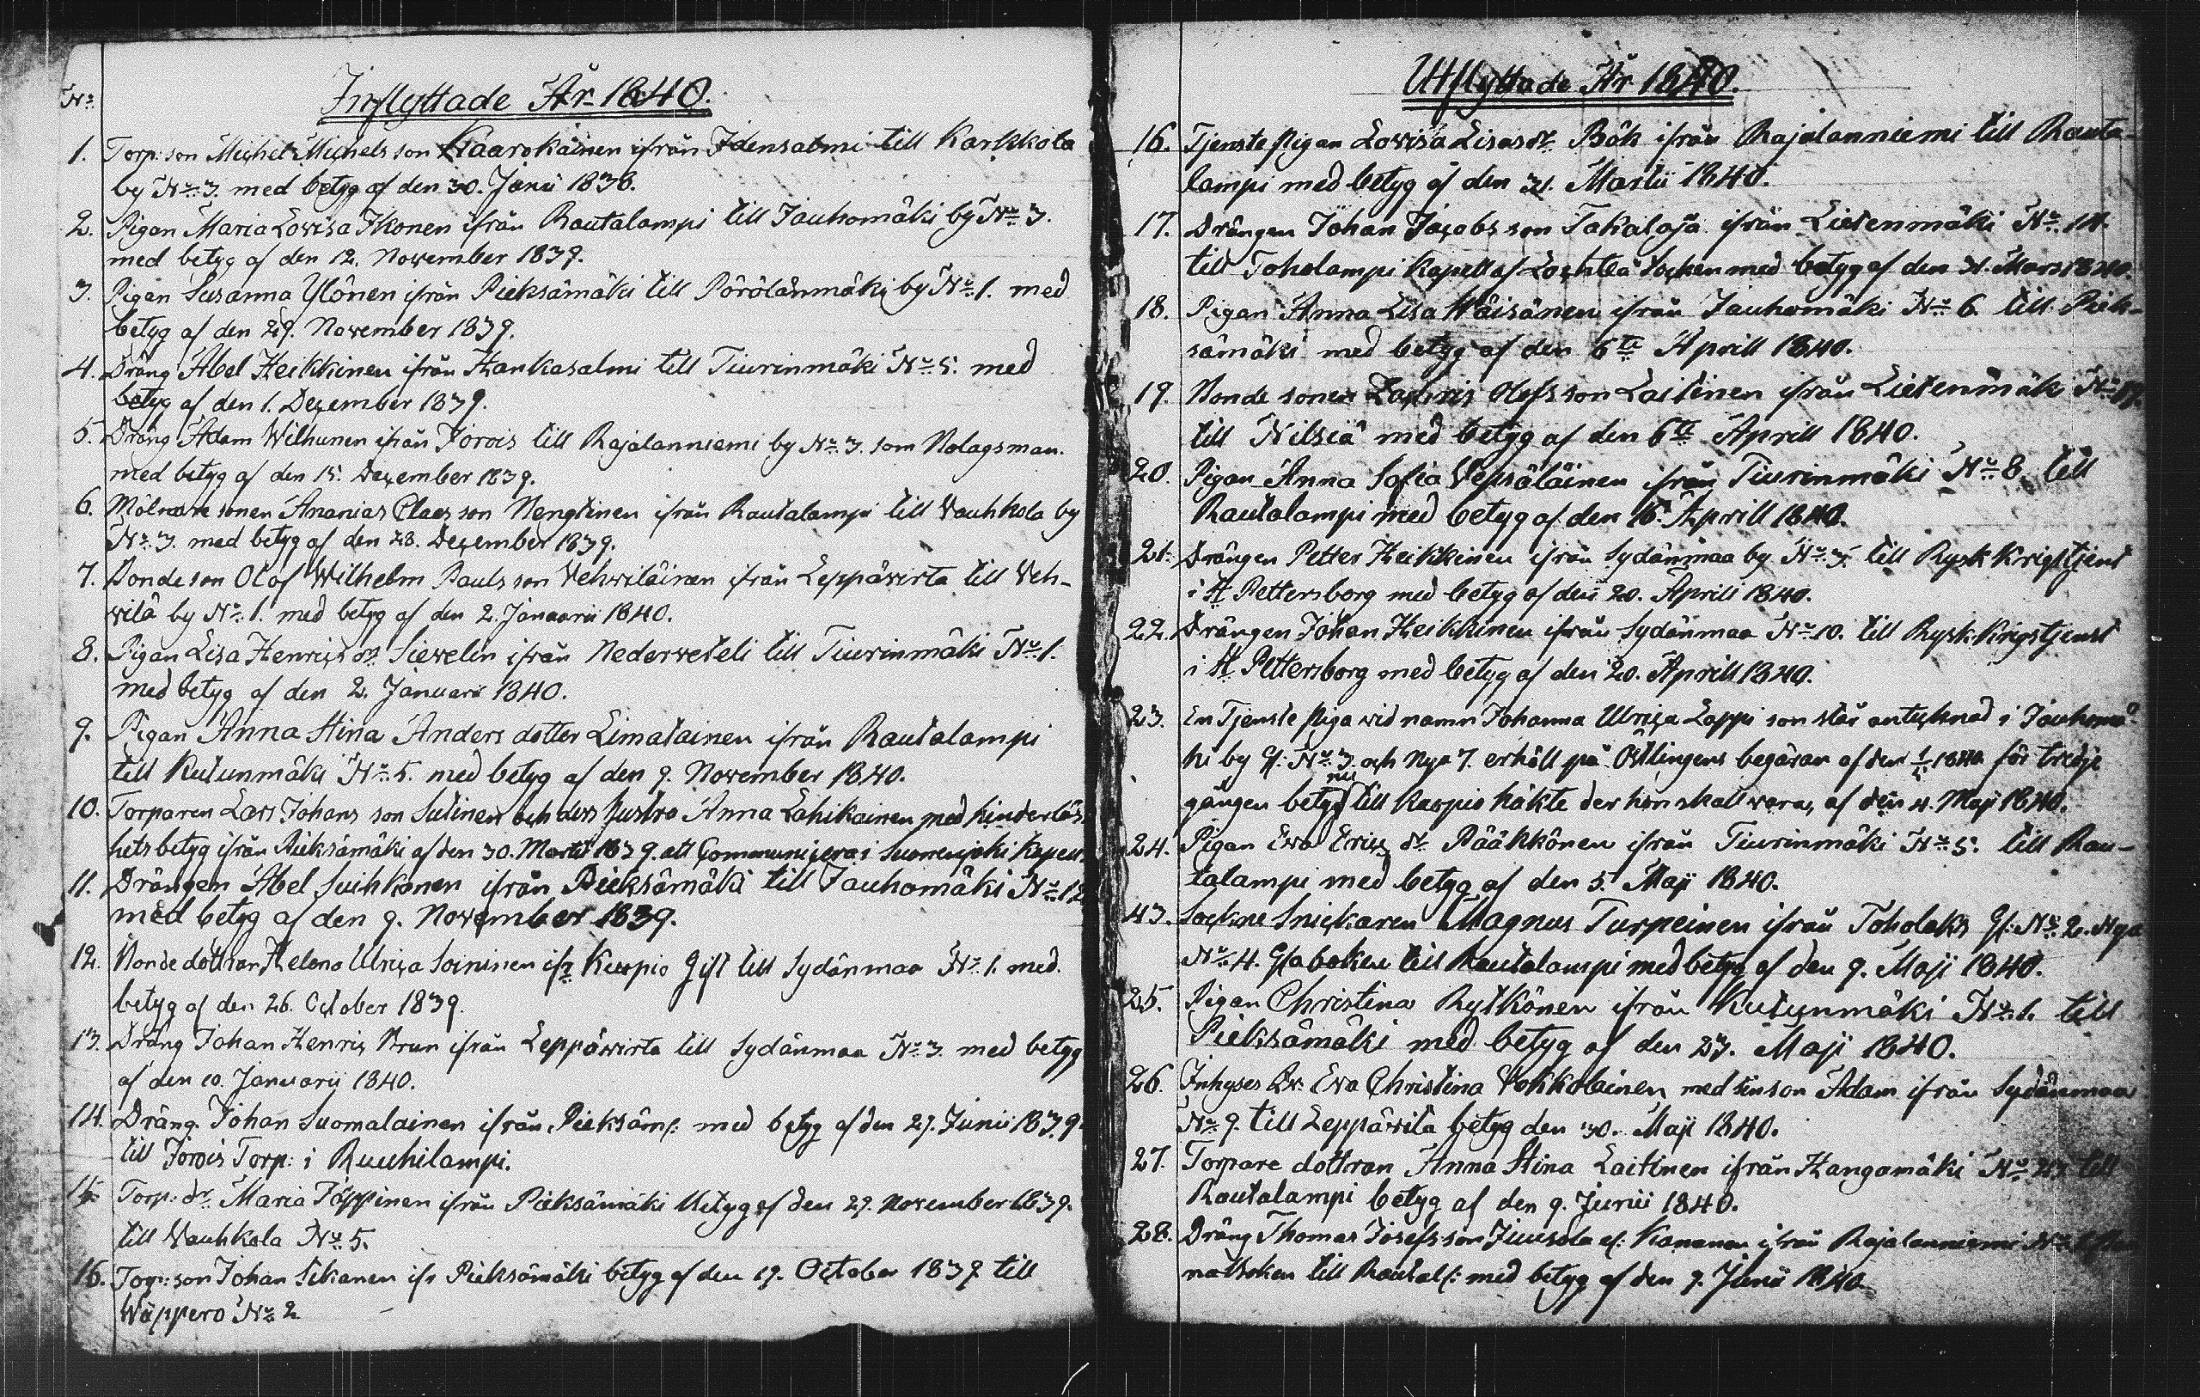 No
Inflyttade År 1840.
1. Torp: son Michel Michels son Kaarokainen ifrån Idensalmi till Karkkola
by No 3. med betyg af den 30. Junii 1838.
2. Pigan Maria Lovisa Ikonen ifrån Rautalampi till Jauhomäki by No 3.
med betyg af den 12. November 1839.
3. Pigan Susanna Ylönen ifrån Pieksämäki till Pörölänmäki by No 1. med
betyg af den 29. November 1839.
4. Dräng Abel Heikkinen ifrån Hankasalmi till Tiurinmäki No 5. med
betyg af den 1. December 1839.
5. Dräng Adam Wilhunen ifrån Jorois till Rajalanniemi by No 3. som Bolagsman.
med betyg af den 15. December 1839.
6. Mölnare sonen Ananias Claes son Nengtinen ifrån Rautalampi till Vauhkola by
No 3. med betyg af den 28. December 1839.
7. Bonde son Olof Wilhelm Pauls son Vehviläinen ifrån Leppävirta till Veh-
vilä by No 1. med betyg af den 2. Januarii 1840.
8. Pigan Lisa Henrics dr Sievelin ifrån Nederveteli till Tiurinmäki No 1.
med betyg af den 2. Januarii 1840.
9. Pigan Anna Stina Anders dotter Limatainen ifrån Rautalampi
till Kutunmäki No 5. med betyg af den 9. November 1840.
10. Torparen Lars Johans son Sutinen och dess hustro Anna Lahikainen med hinderlös
hets betyg ifrån Pieksämäki af den 30. Martii 1839. att Communicera i Suonenjoki Kapell
11. Drängen Abel Suihkonen ifrån Pieksämäki till Jauhomäki No 12
med betyg af den 9. November 1839.
12. Bonde dottran Helena Ulrica Soininen ifr Kuopio Gift till Sydänmaa No 1. med
betyg af den 26. October 1839.
13. Dräng Johan Henric Brun ifrån Leppävirta till Sydänmaa No 3. med betyg
af den 10. Januarii 1840.
14. Dräng Johan Suomalainen ifrån Pieksäm/: med betyg af den 29. Junii 1839
till Jorois Torp: i Ruuhilampi.
15. Torp: dr Maria Jäppinen ifrån Pieksämäki Betyg af den 29. November 1839.
till Vauhkola No 5.
16. Torp: son Johan Sikanen ifr Pieksämäki betyg af den 19. October 1839 till
Wäppero No 2
Utflyttade År 1840.
16. Tjenste pigan Lovisa Lisas dr Böh ifrån Rajalanniemi till Rauta-
lampi med betyg af den 31. Martii 1840.
17. Drängen Johan Jacobs son Takaloja ifrån Lietenmäki No 14.
till Toholampi Kapell af Lochteå Socken med betyg af den 31. Mars 1840.
18. Pigan Anna Lisa Wäisänen ifrån Jauhomäki No 6. till Piek-
sämäki med betyg af den 6te Aprill 1840.
19. Bonde sonen Zachris Olofs son Laitinen ifrån Lietenmäk No 19.
till Nilsiä med betyg af den 6te Aprill 1840.
20. Pigan Anna Sofia Vepsäläinen ifrån Tiurinmäki No 8. till
Rautalampi med betyg af den 16. Aprill 1840.
21. Drängen Petter Heikkinen ifrån Sydänmaa by No 3. till Rysk Krigstjenst
i St Pettersborg med betyg af den 20. Aprill 1840.
22. Drängen Johan Heikkinen ifrån Sydänmaa No 10. till Rysk Krigstjenst
i St Pettersborg med betyg af den 20. Aprill 1840.
23. En Tjenste piga vid namn Johanna Ulrica Lappi som står antecknad i Jauhomä-
ki by Gl: No 3 och Nya 7. erhöll på begäran af den 1840 för tredje
gången betyg nu till Kuopio häkte der hon skall vara, af den 4. Maji 1840.
24. Pigan Eva Erics dr Pääkkönen ifrån Tiurinmäki No 5. till Rau-
talampi med betyg af den 5. Maji 1840.
43. Sockne Snickaren Magnus Turpeinen ifrån Toholaks Gl: No 2. Nya
No 4. Gla boken till Rautalampi med betyg af den 9. Maji 1840.
25. Pigan Christina Rytkönen ifrån Kutunmäki No 1. till
Pieksämäki med betyg af den 23. Maji 1840.
26. Inhyses Qv: Eva Christina Vokkolainen med sin son Adam ifrån Sydänmaa
No 9. till Leppävita betyg den 30. Maji 1840.
27. Torpare dottran Anna Stina Laitinen ifrån Hangamäki No 23 till
Rautalampi betyg af den 9. Junii 1840.
28. Dräng Thomas Josefs son Juusola el: Kananen ifrån Rajalanniemi No
boken till Rautal/: med betyg af den 9. Junii 1840